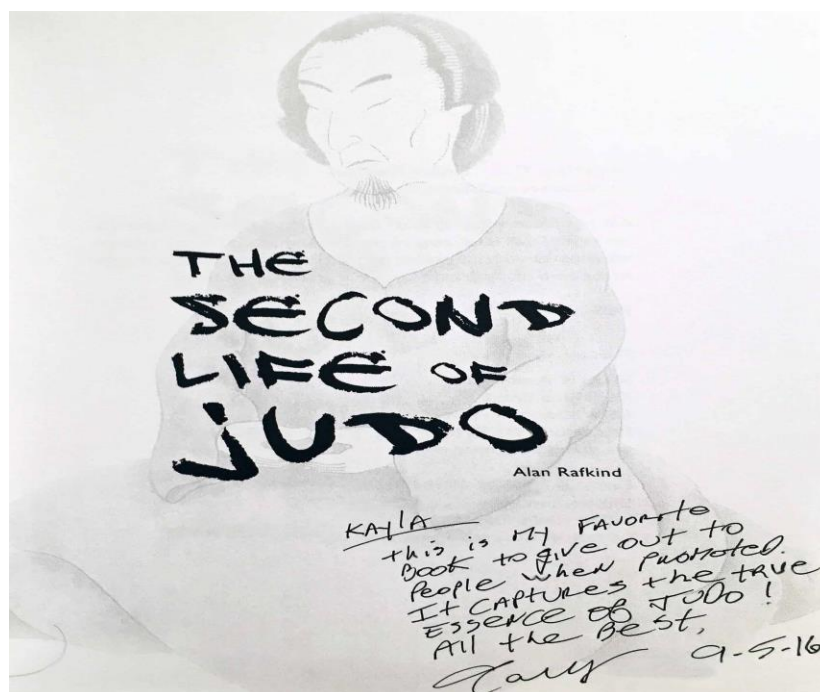 THE
SECOND
LIFE OF
JUDO
Alan Rafkind
KAYlA
this is My FAVORITE
BOOK to give out to
People when PROMOTED.
It CAPTURES the TRUE
ESSENCE OF JUDO!
All the Best,
9-5-16